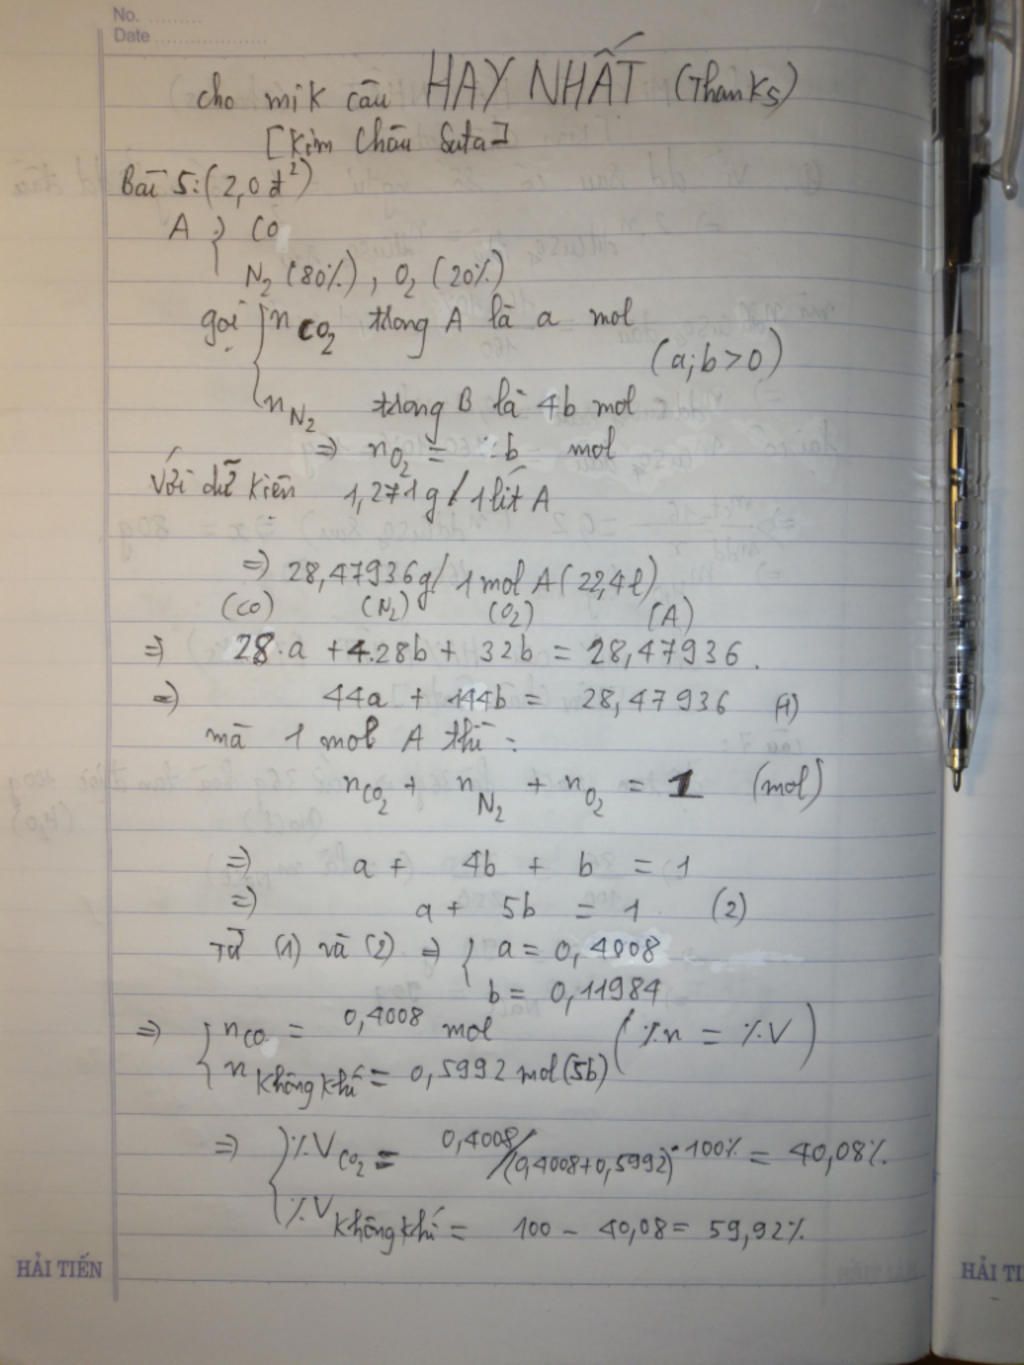 No. .........
Date ...................
cho mik câu HAY NHẤT (Thanks)
[Kim Châu Suta]
Bài 5: (2,0 đ²)
A { CO
N₂ (80%), O₂ (20%)
gọi { nCO₂ trong A là a mol
(a; b > 0)
nN₂ trong B là 4b mol
=> nO₂ = b mol
Với dữ kiện 1,271g/1 lít A
=> 28,47936g/1 mol A (22,4l)
(CO) (N₂) (O₂) (A)
=> 28.a + 4.28b + 32b = 28,47936.
=> 44a + 144b = 28,47936 (1)
mà 1 mol A thì:
nCO₂ + nN₂ + nO₂ = 1 (mol)
=> a + 4b + b = 1
=> a + 5b = 1 (2)
Từ (1) và (2) => { a = 0,4008
b = 0,11984
=> { nCO = 0,4008 mol (%n = %V)
nKhông khí = 0,5992 mol (5b)
=> { %VCO₂ = 0,4008/(0,4008+0,5992) . 100% = 40,08%
%VKhông khí = 100 - 40,08 = 59,92%
HẢI TIẾN
HẢI TI